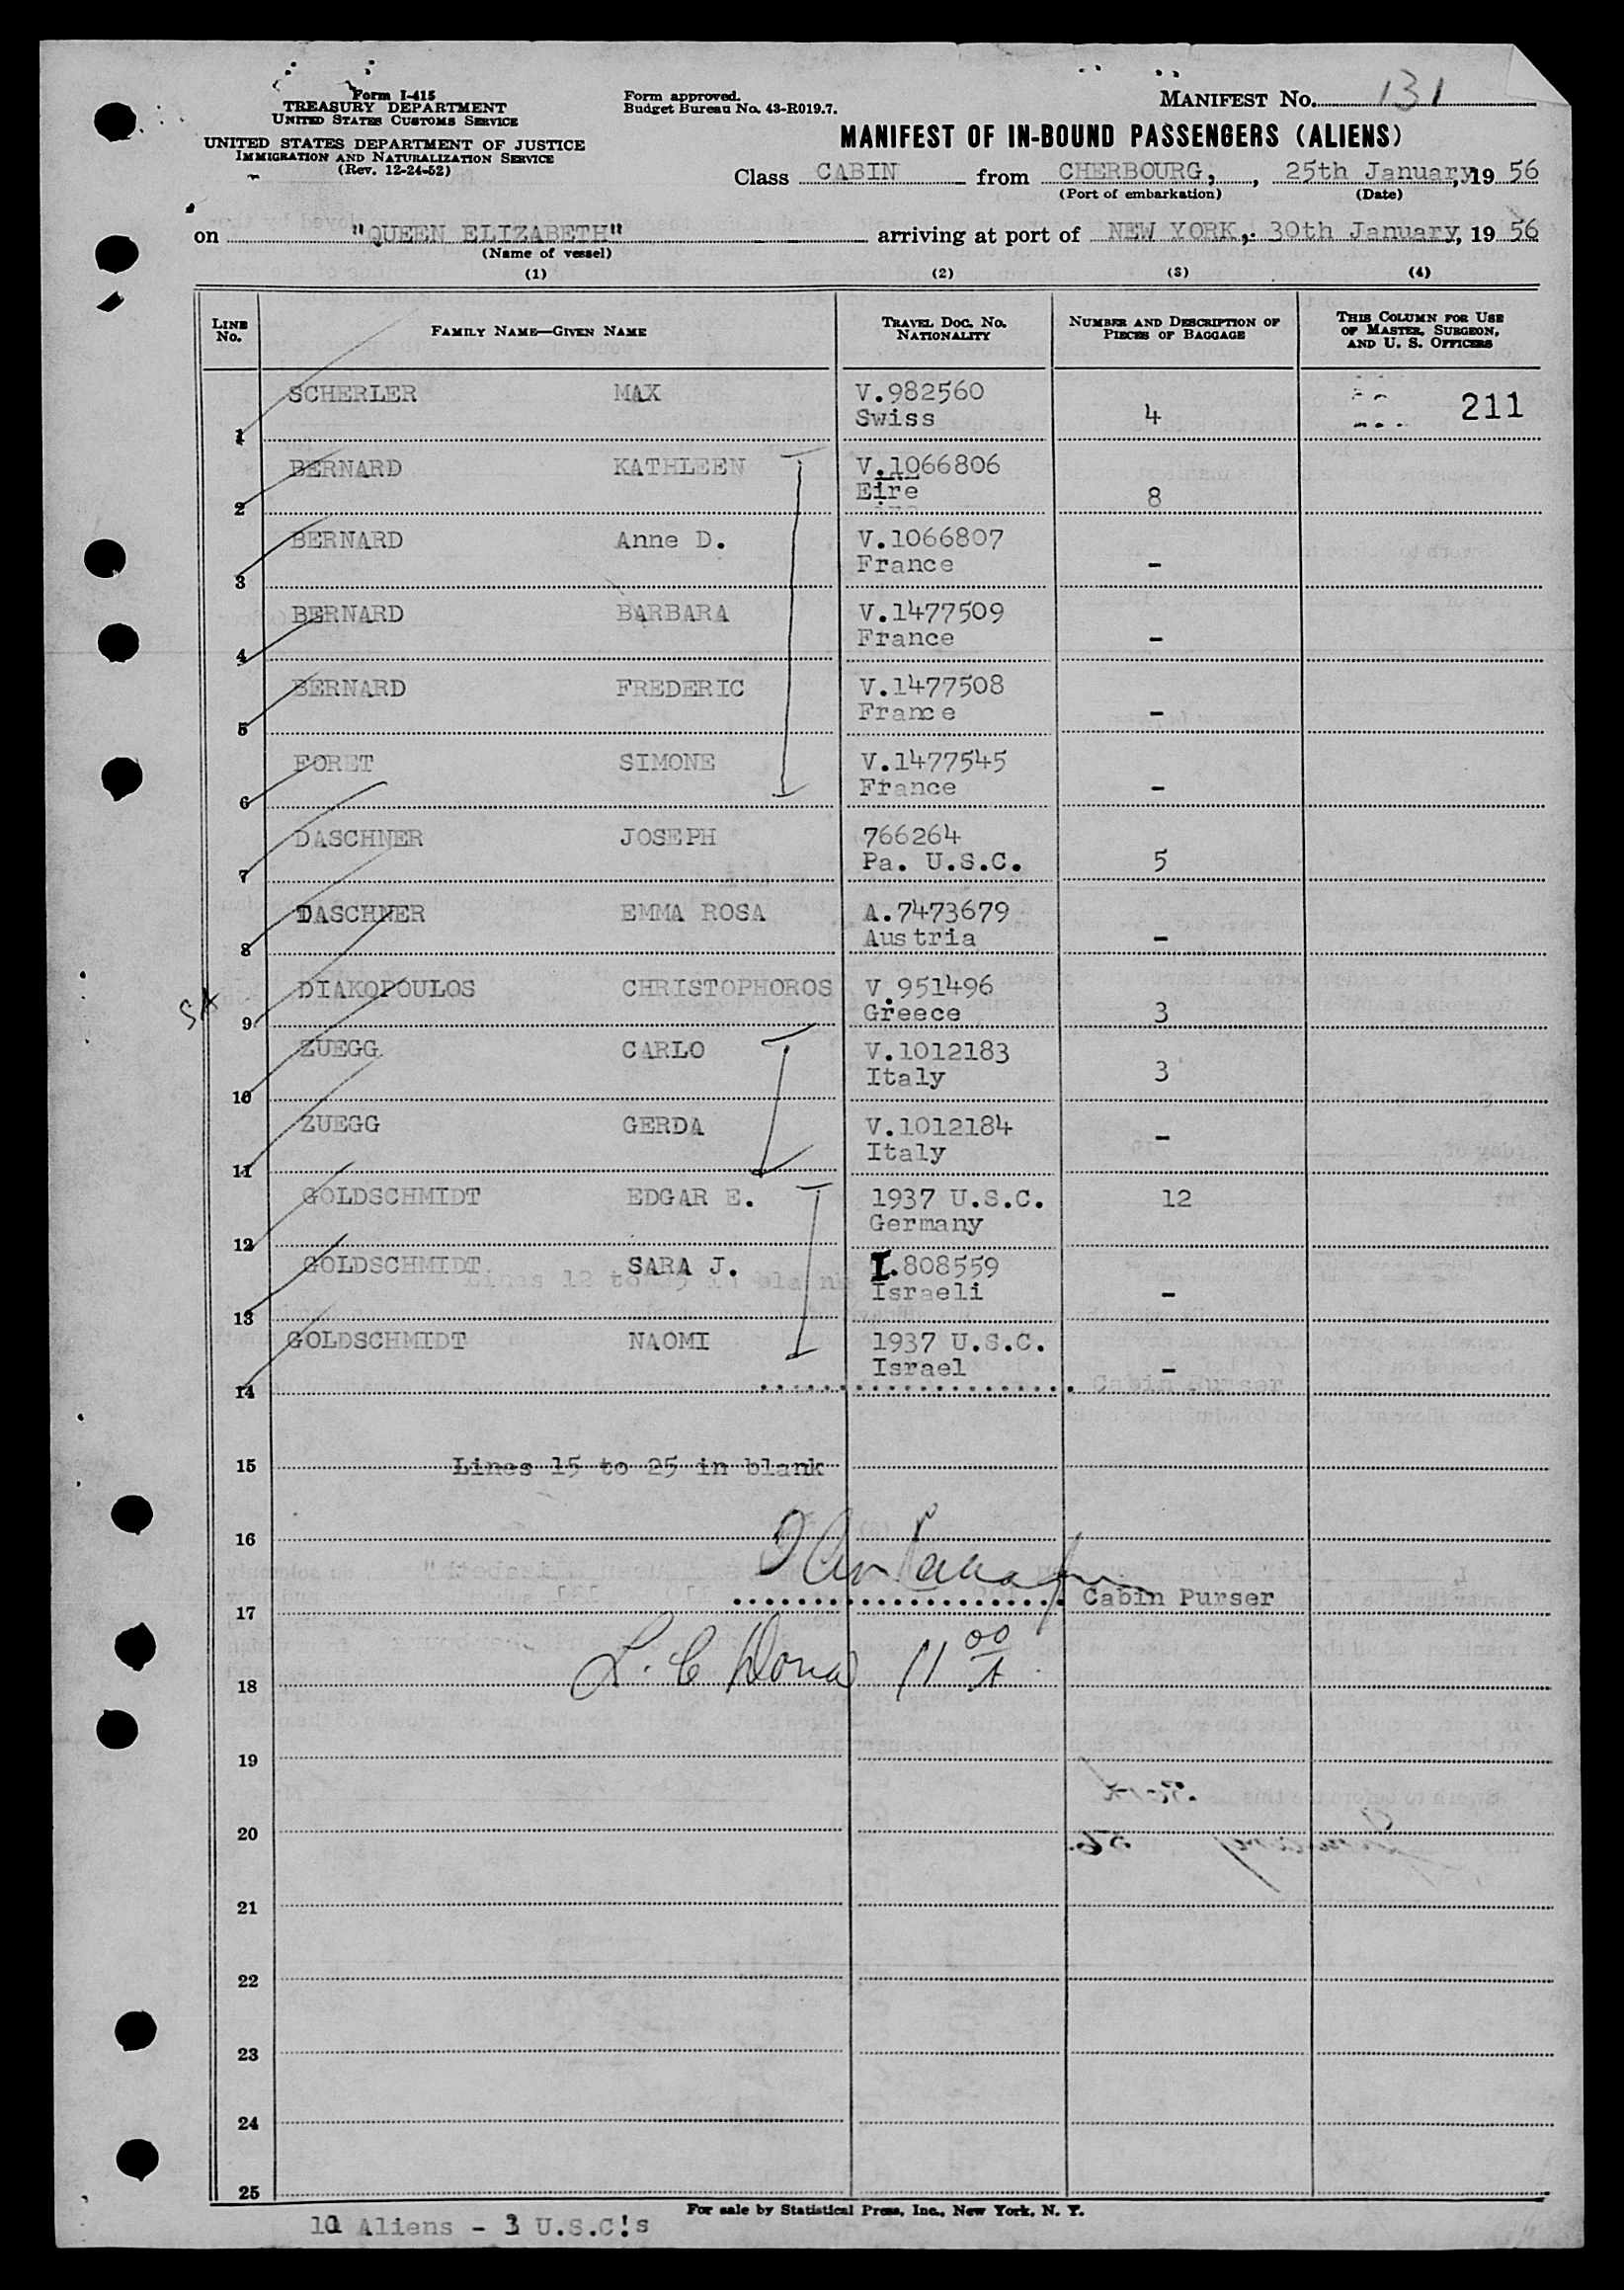 Form I-415
TREASURY DEPARTMENT
UNITED STATES CUSTOMS SERVICE
UNITED STATES DEPARTMENT OF JUSTICE
IMMIGRATION AND NATURALIZATION SERVICE
(Rev. 12-24-52)
Form approved.
Budget Bureau No. 43-R019.7.
MANIFEST NO. 131
MANIFEST OF IN-BOUND PASSENGERS (ALIENS)
Class CABIN from CHERBOURG, , 25th January, 19 56
(Port of embarkation) (Date)
on "QUEEN ELIZABETH" arriving at port of NEW YORK, 30th January, 19 56
(Name of vessel)
(1) (2) (3) (4)
LINE NO. FAMILY NAME—GIVEN NAME TRAVEL DOC. NO. NATIONALITY NUMBER AND DESCRIPTION OF PIECES OF BAGGAGE THIS COLUMN FOR USE OF MASTER, SURGEON, AND U. S. OFFICERS
1 SCHERLER MAX V.982560 Swiss 4 211
2 BERNARD KATHLEEN V.1066806 Eire 8
3 BERNARD Anne D. V.1066807 France -
4 BERNARD BARBARA V.1477509 France -
5 BERNARD FREDERIC V.1477508 France -
6 FORET SIMONE V.1477545 France -
7 DASCHNER JOSEPH 766264 Pa. U.S.C. 5
8 DASCHNER EMMA ROSA A.7473679 Austria -
9 DIAKOPOULOS CHRISTOPHOROS V.951496 Greece 3
10 ZUEGG CARLO V.1012183 Italy 3
11 ZUEGG GERDA V.1012184 Italy -
12 GOLDSCHMIDT EDGAR E. 1937 U.S.C. Germany 12
13 GOLDSCHMIDT SARA J. I.808559 Israeli -
14 GOLDSCHMIDT NAOMI 1937 U.S.C. Israel -
Cabin Purser
15 Lines 15 to 25 in blank
16
17 Cabin Purser
18 11 00 A
19
20
21
22
23
24
25
For sale by Statistical Press, Inc., New York, N. Y.
Aliens - 3 U.S.C's